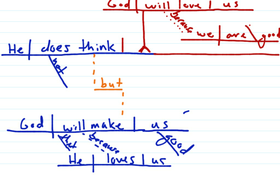 God will love us
because
we are good
He does think
not
but
God will make us
that because good
He loves us